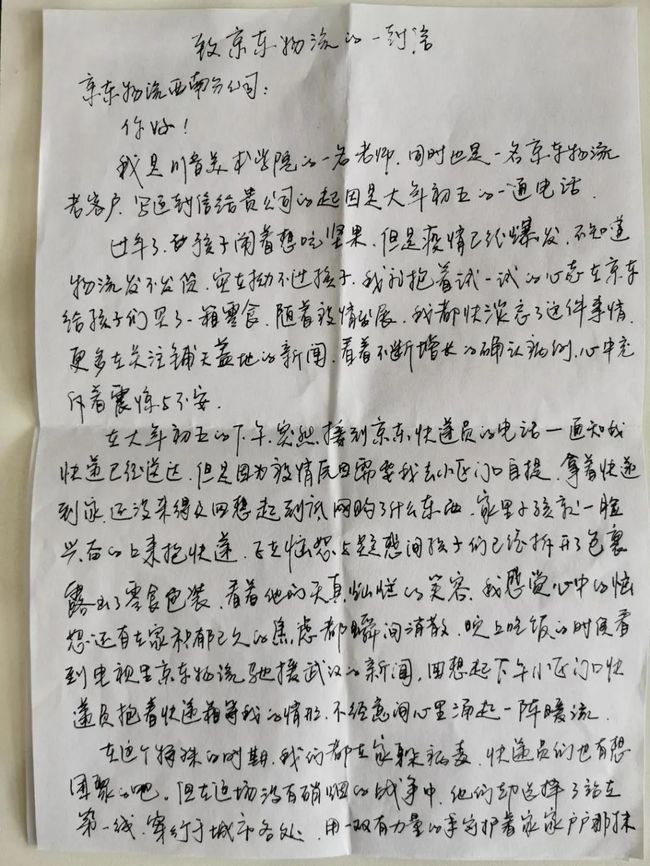 致京东物流的一封信
京东物流西南分公司：
你好！
我是川音美术学院的一名老师，同时也是一名京东物流
老客户，写这封信给贵公司的起因是大年初五的一通电话。
过年了，孩子闹着想吃坚果，但是疫情已经爆发，不知道
物流发不发货，实在拗不过孩子，我就抱着试一试的心态在京东
给孩子们买了一箱零食，随着疫情发展，我都快淡忘了这件事情，
更多在关注铺天盖地的新闻，看着不断增长的确认病例，心中充
斥着震惊与不安。
在大年初五的下午，突然接到京东快递员的电话一通知我
快递已经送达，但是因为疫情原因需要我去小区门口自提，拿着快递
到家，还没来得及回想起到底网购了什么东西，家里小孩就一脸
兴奋的上来抱快递，正在恼怒与疑惑间孩子们已经拆开了包裹
露出了零食包装，看着他们天真灿烂的笑容，我感觉心中的恼
怒还有在家积郁已久的焦虑都瞬间消散，晚上吃饭的时候看
到电视里京东物流驰援武汉的新闻，回想起下午小区门口快
递员抱着快递箱等我的情形，不经意间心里涌起一阵暖流。
在这个特殊的时期，我们都在家躲病毒，快递员们也有想
团聚的吧，但在这场没有硝烟的战争中，他们却选择了站在
第一线，穿行于城市各处，用一双有力量的手守护着家家户户那抹